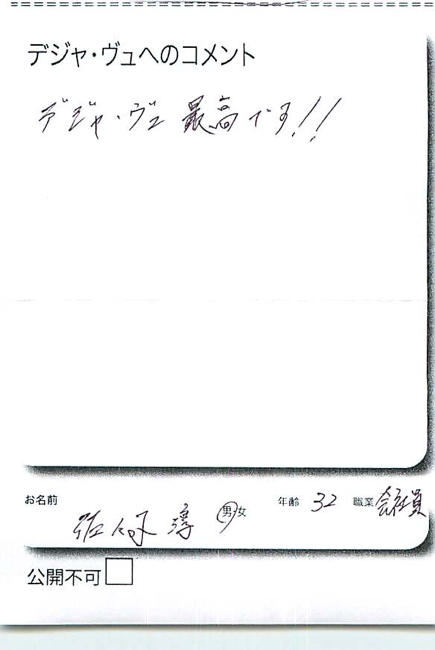 デジャ・ヴュへのコメント
デジャ・ヴュ 最高です!!
お名前 淳 男 女 年齢 32 職業 会社員
公開不可